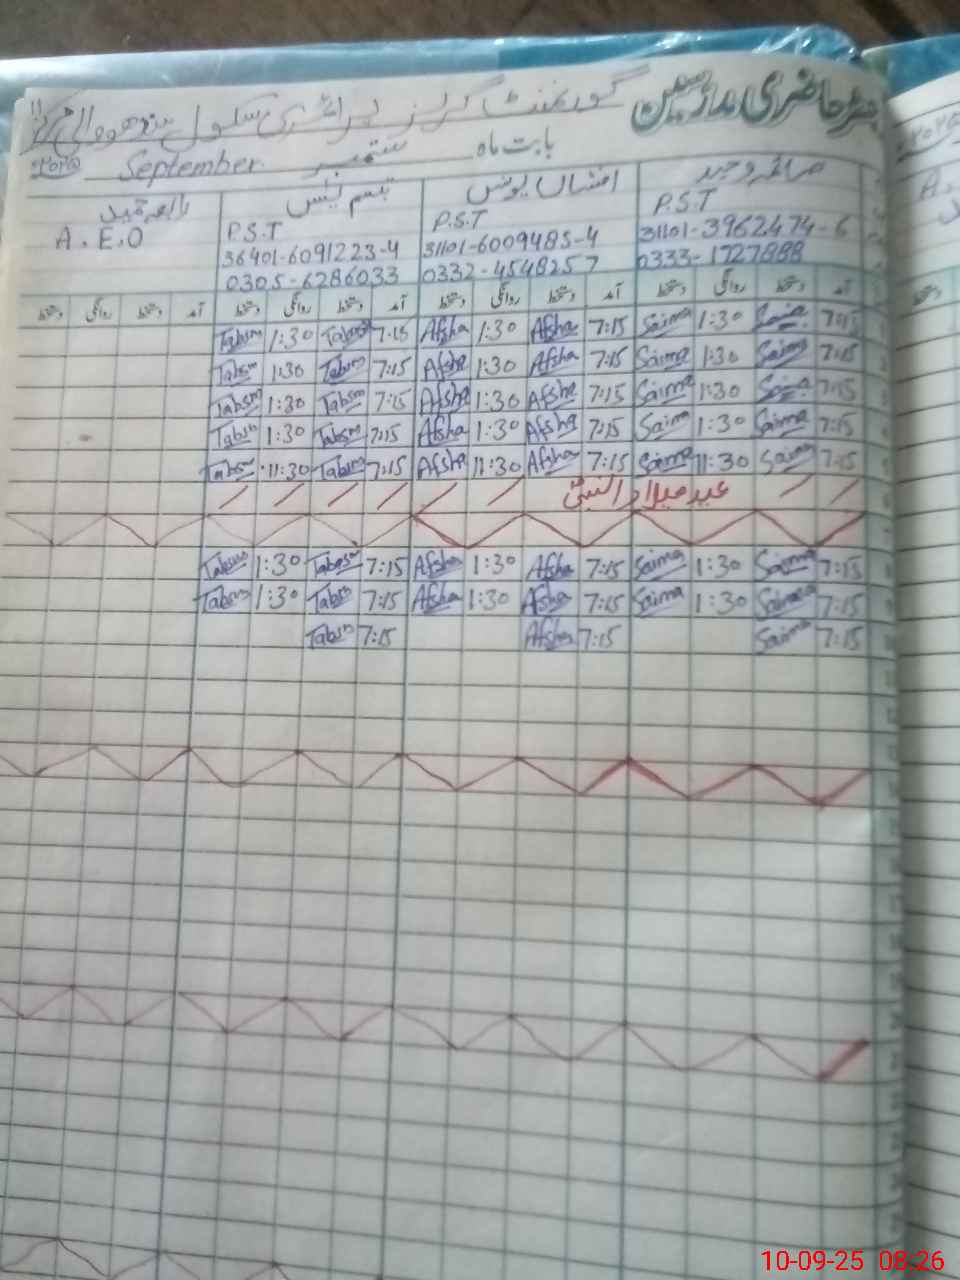 رجسٹر حاضری مدرسین گورنمنٹ گرلز پرائمری سکول
بابت ماہ ستمبر September ۲۰۲۵
صائمہ وحید افشاں یونس تبسم
P.S.T P.S.T P.S.T A.E.O
31101-3962474-6 31101-6009485-4 36401-6091223-4
0333-1727888 0332-4548257 0305-6286033
آمد دستخط روانگی دستخط آمد دستخط روانگی دستخط آمد دستخط روانگی دستخط آمد دستخط روانگی دستخط
7:15 Saima 1:30 Saima 7:15 Afsha 1:30 Afsha 7:15 Tabsm 1:30 Tabsm
7:15 Saima 1:30 Saima 7:15 Afsha 1:30 Afsha 7:15 Tabsm 1:30 Tabsm
7:15 Saima 1:30 Saima 7:15 Afsha 1:30 Afsha 7:15 Tabsm 1:30 Tabsm
7:15 Saima 1:30 Saima 7:15 Afsha 1:30 Afsha 7:15 Tabsm 1:30 Tabsm
7:15 Saima 11:30 Saima 7:15 Afsha 11:30 Afsha 7:15 Tabsm 11:30 Tabsm
عید میلاد النبیؐ
7:15 Saima 1:30 Saima 7:15 Afsha 1:30 Afsha 7:15 Tabsm 1:30 Tabsm
7:15 Saima 1:30 Saima 7:15 Afsha 1:30 Afsha 7:15 Tabsm 1:30 Tabsm
7:15 Saima 7:15 Afsha 7:15 Tabsm
10-09-25 08:26